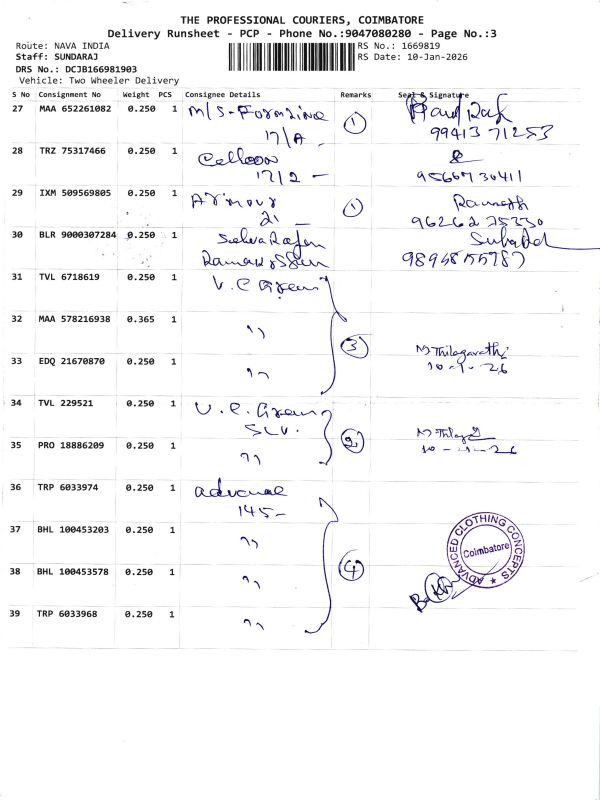 THE PROFESSIONAL COURIERS, COIMBATORE
Delivery Runsheet - PCP - Phone No.:9047080280 - Page No.:3
Route: NAVA INDIA
RS No.: 1669819
Staff: SUNDARAJ
RS Date: 10-Jan-2026
DRS No.: DCJB166981903
Vehicle: Two Wheeler Delivery
S No Consignment No Weight PCS Consignee Details Remarks Seal & Signature
27 MAA 652261082 0.250 1 M/S-
17/A 1 99413 71253
28 TRZ 75317466 0.250 1
17/2 - 9566730411
29 IXM 509569805 0.250 1 Armour
21 - 1 Ramesh
30 BLR 9000307284 0.250 1 Selva
31 TVL 6718619 0.250 1 V.C Green
32 MAA 578216938 0.365 1 ,,
33 EDQ 21670870 0.250 1 ,, 3 M Thilagavathi
10-1-26
34 TVL 229521 0.250 1 V.C. Green
SLV. 2 M Thilag
35 PRO 18886209 0.250 1 ,, 10-1-26
36 TRP 6033974 0.250 1 advance
145-
37 BHL 100453203 0.250 1 ,,
38 BHL 100453578 0.250 1 ,, 4
39 TRP 6033968 0.250 1 ,,
ADVANCED CLOTHING CONCEPTS
Coimbatore